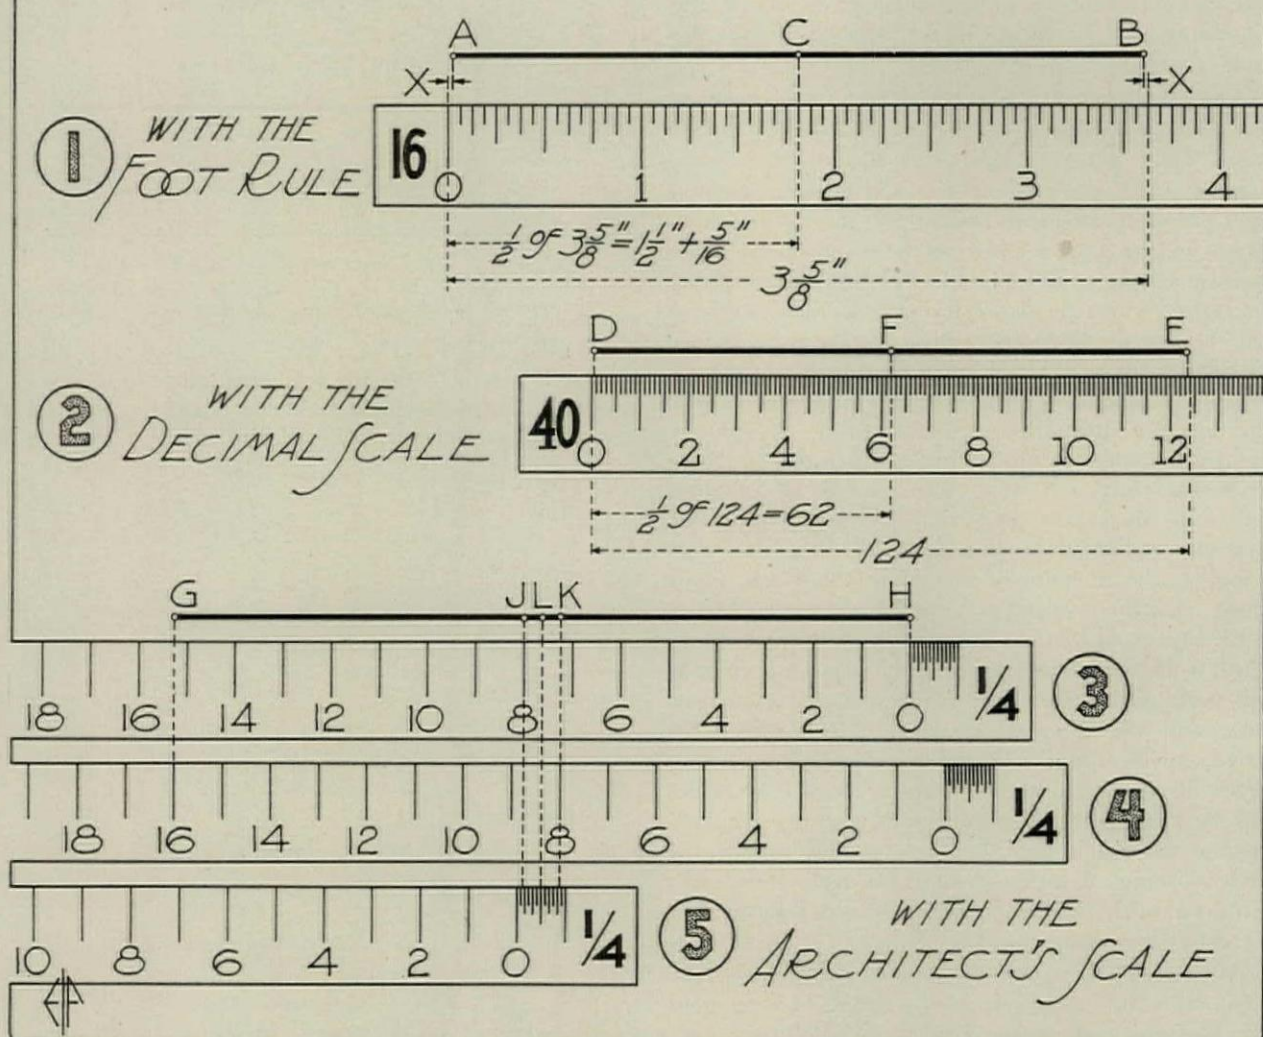 A C B
X X
1 WITH THE
FOOT RULE
16
0 1 2 3 4
1/2 of 3 5/8" = 1 1/2" + 5/16"
3 5/8"
D F E
2 WITH THE
DECIMAL SCALE
40
0 2 4 6 8 10 12
1/2 of 124 = 62
124
G J L K H
18 16 14 12 10 8 6 4 2 0 1/4 3
18 16 14 12 10 8 6 4 2 0 1/4 4
10 8 6 4 2 0 1/4 5
WITH THE
ARCHITECT'S SCALE